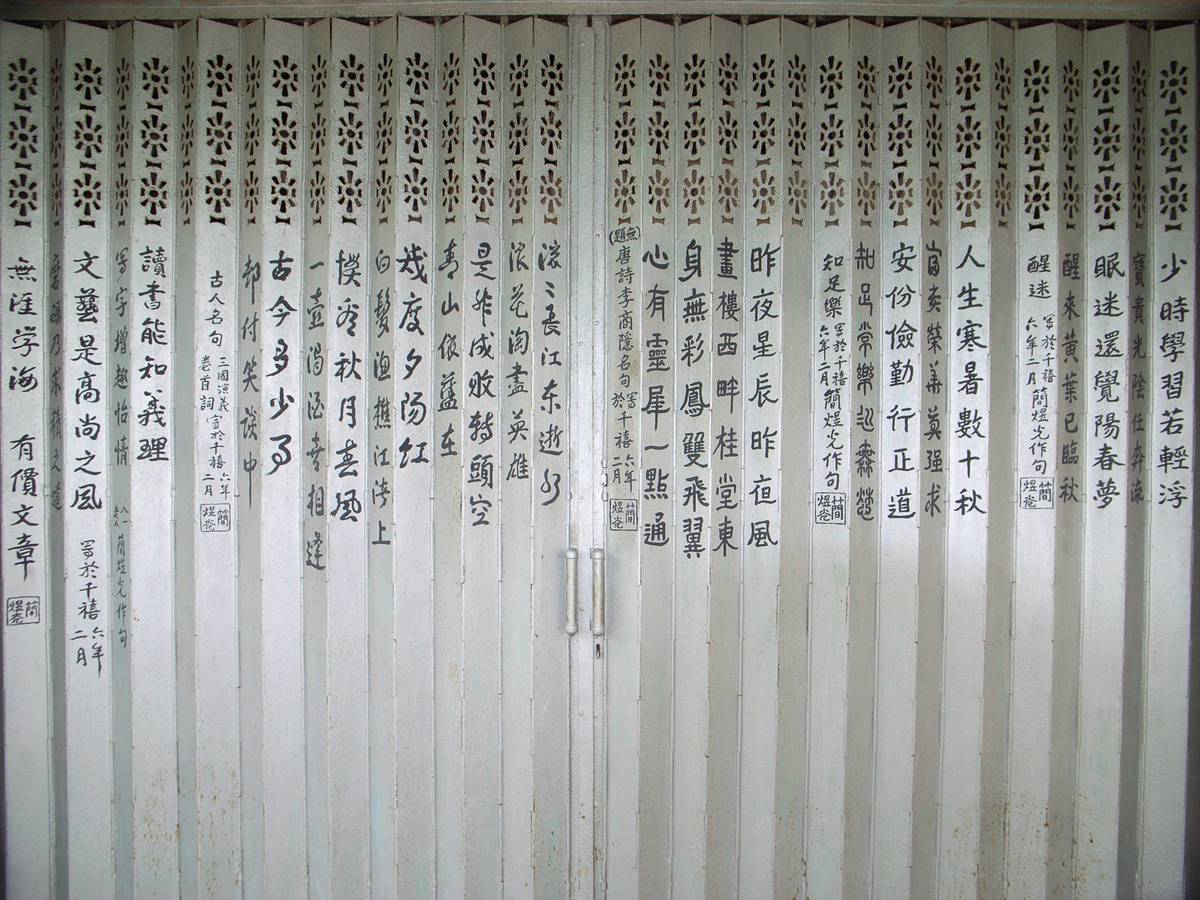 少時學習若輕浮
寶貴光陰任奔流
眠迷還覺陽春夢
醒來黃葉已臨秋
醒迷 寫於千禧六年二月簡煜光作句
人生寒暑數十秋
富貴榮華莫强求
安份儉勤行正道
知足常樂
知足樂 寫於千禧六年二月簡煜光作句
昨夜星辰昨夜風
畫樓西畔桂堂東
身無彩鳳雙飛翼
心有靈犀一點通
(無題)唐詩李商隱名句 寫於千禧六年二月
滚〻長江东逝水
浪花淘盡英雄
是非成敗轉頭空
青山依舊在
幾度夕陽紅
白髮漁樵江渚上
慣看秋月春風
一壺濁酒喜相逢
古今多少事
都付笑談中
古人名句 三國演義卷首詞 寫於千禧六年二月
讀書能知義理
寫字增趣怡情 八一老人簡煜光作句
文藝是高尚之風 寫於千禧六年二月
磨練乃求精之道
無涯学海 有價文章